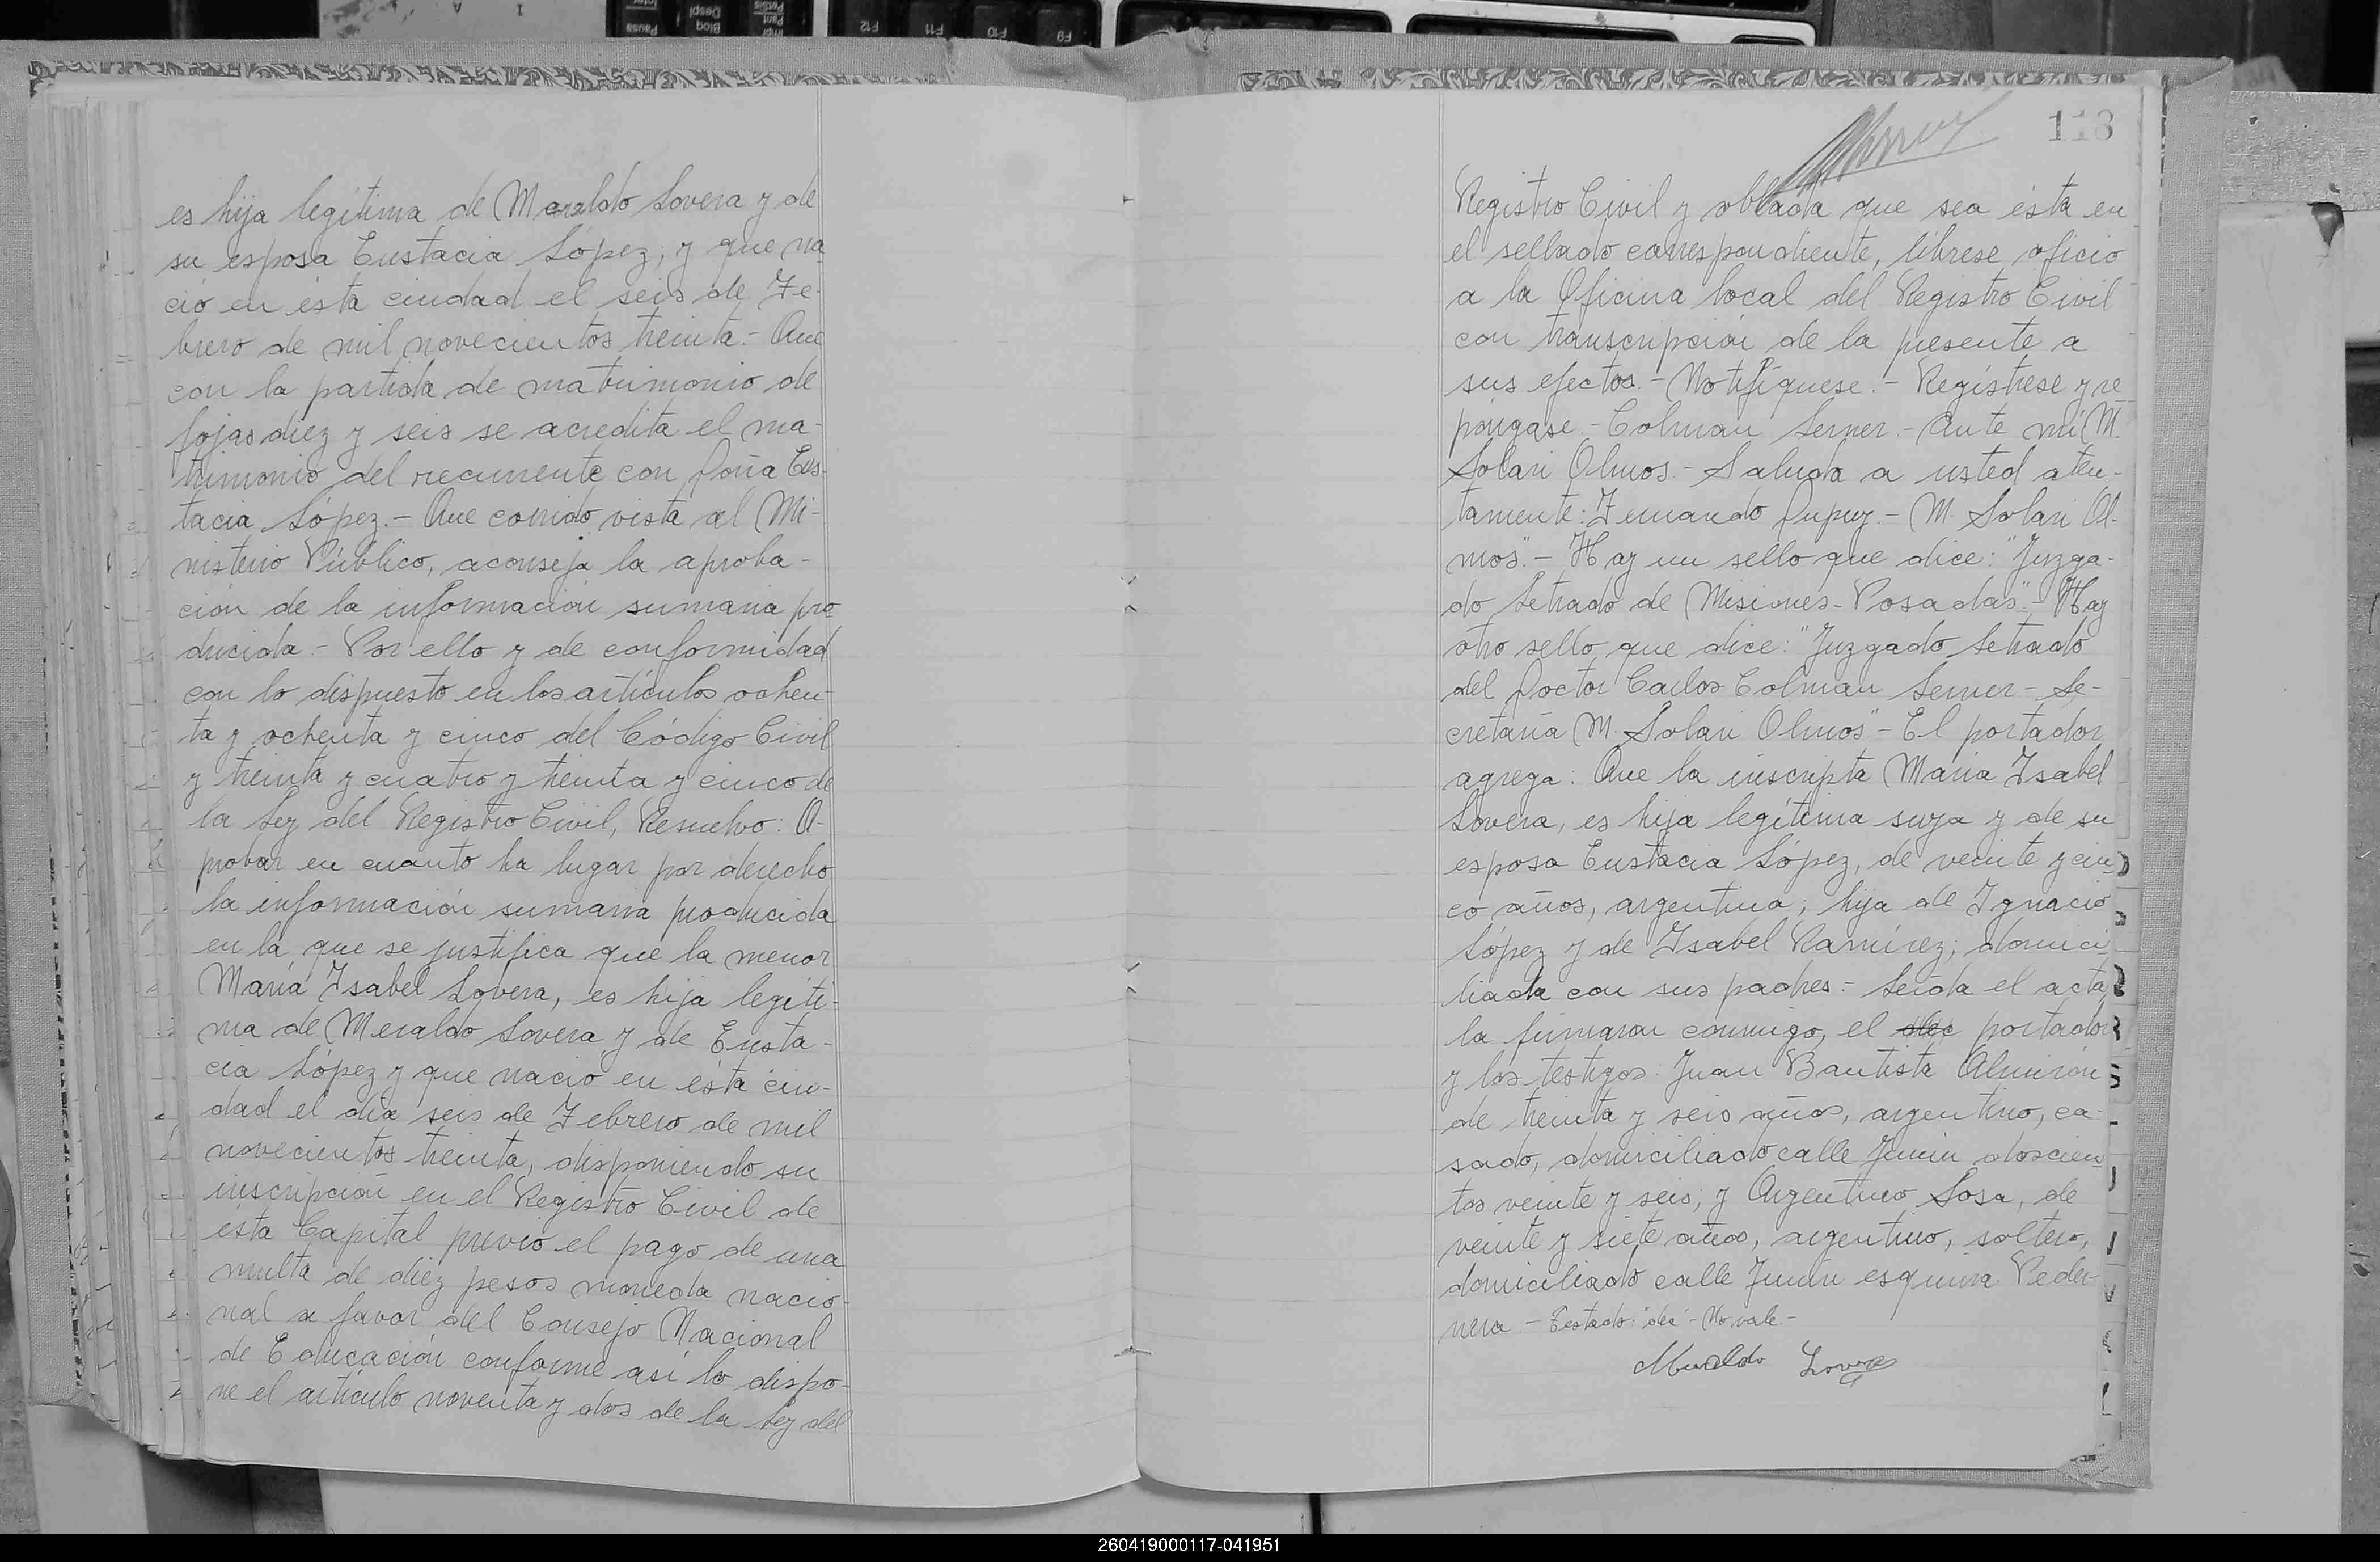 es hija legítima de Meraldo Lovera y de
su esposa Eustacia López; y que na
ció en ésta ciudad el seis de Fe-
brero de mil novecientos treinta.- Que
con la partida de matrimonio de
fojas diez y seis se acredita el ma-
trimonio del recurrente con Doña Eus-
tacia López.- Que corrido vista al Mi-
nisterio Público, aconseja la aproba-
ción de la información sumaria pro
ducida.- Por ello y de conformidad
con lo dispuesto en los artículos ochen
ta y ochenta y cinco del Código Civil
y treinta y cuatro y treinta y cinco de
la Ley del Registro Civil, Resuelvo: A-
probar en cuanto ha lugar por derecho
la información sumaria producida
en la que se justifica que la menor
María Isabel Lovera, es hija legíti-
ma de Meraldo Lovera y de Eusta-
cia López y que nació en ésta ciu-
dad el día seis de Febrero de mil
novecientos treinta, disponiendo su
inscripción en el Registro Civil de
ésta Capital previo el pago de una
multa de diez pesos moneda nacio-
nal a favor del Consejo Nacional
de Educación conforme así lo dispo-
ne el artículo noventa y dos de la Ley del
118
Registro Civil y oblada que sea ésta en
el sellado correspondiente, líbrese oficio
a la Oficina local del Registro Civil
con transcripción de la presente a
sus efectos.- Notifíquese.- Regístrese y re
póngase.- Colman Lerner.- Ante mí M.
Solari Olmos.- Saluda a usted aten-
tamente: Fernando Dupuy.- M. Solari Ol-
mos".- Hay un sello que dice: "Juzga-
do Letrado de Misiones- Posadas".- Hay
otro sello que dice: "Juzgado Letrado
del Doctor Carlos Colman Lerner- Se-
cretaría M. Solari Olmos"- El portador
agrega: Que la inscripta María Isabel
Lovera, es hija legítima suya y de su
esposa Eustacia López, de veinte y cin
co años, argentina; hija de Ignacio
López y de Isabel Ramírez; domici
liada con sus padres.- Leída el acta
la firmaron conmigo, el portador
y los testigos: Juan Bautista Almirón
de treinta y seis años, argentino, ca-
sado, domiciliado calle Junín doscien
tos veinte y seis; y Argentino Sosa, de
veinte y siete años, argentino, soltero,
domiciliado calle Junín esquina Peder
nera.- Testado: - No vale.-
Meraldo Lovera
260419000117-041951